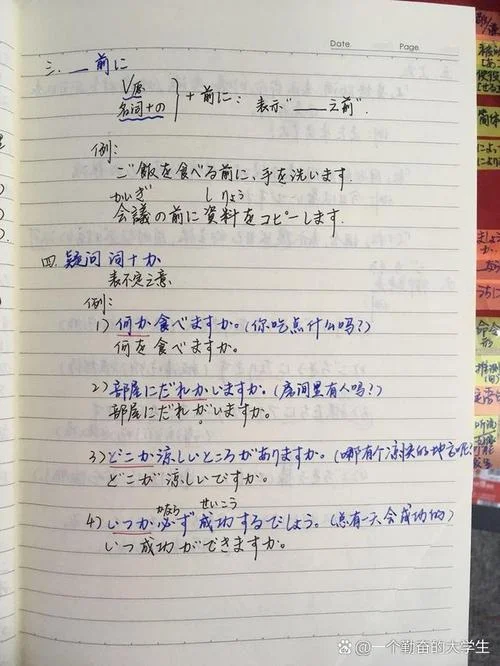 Date.
Page.
三. ＿＿前に
V原
名词+の
}+前に: 表示“＿＿之前”.
例:
ご飯を食べる前に、手を洗います.
かいぎ しりょう
会議の前に資料をコピーします.
四. 疑问词+か
表不定之意
例:
1) 何か食べますか。(你吃点什么吗?)
何を食べますか。
2) 部屋にだれかいますか。(房间里有人吗?)
部屋にだれがいますか。
3) どこか涼しいところがありますか。(哪有个凉快的地方呢?
どこが涼しいですか。
かなら せいこう
4) いつか必ず成功するでしょう。(总有一天会成功的)
いつ成功ができますか。
简体
命令
形
推测
一个勤奋的大学生